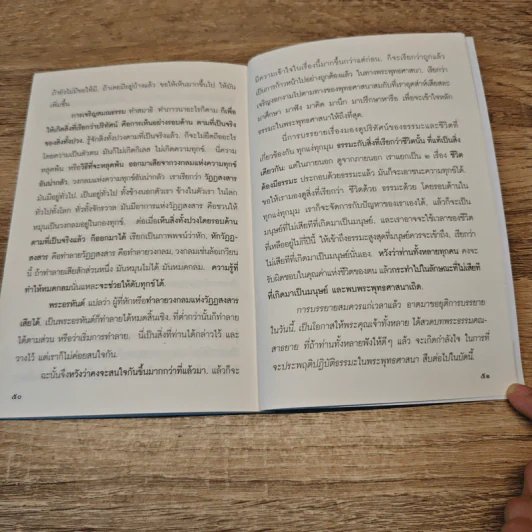 ถ้ายังไม่มีขอให้มี. ถ้าเคยมีอยู่บ้างแล้ว ขอให้เพิ่มมากขึ้นไป ให้มัน
เพิ่มขึ้น
การเจริญสมณธรรม ทำสมาธิ ทำภาวนาอะไรก็ตาม ก็เพื่อ
ให้เกิดสิ่งที่เรียกว่าปริทัศน์ คือการเห็นอย่างรอบด้าน ตามที่เป็นจริง
ของสิ่งทั้งปวง. รู้จักสิ่งทั้งปวงตามที่เป็นจริงแล้ว. ก็จะไม่ยึดถืออะไร
โดยความเป็นตัวตน มันก็ไม่เกิดกิเลส ไม่เกิดความทุกข์. นี่ความ
หลุดพ้น หรือวิธีที่จะหลุดพ้น ออกมาเสียจากวงกลมแห่งความทุกข์
อันน่ากลัว. วงกลมแห่งความทุกข์อันน่ากลัว เราเรียกว่า วัฏฏสงสาร
มันมีอยู่ทั่วไป เป็นอยู่ทั่วไป ทั้งข้างนอกตัวเรา ข้างในตัวเรา ในโลก
ทั่วไปทั้งโลก ทั่วทั้งจักรวาล มันมีอาการแห่งวัฏฏสงสาร คือชวนให้
หมุนเป็นวงกลมอยู่ในกองทุกข์. ต่อเมื่อเห็นสิ่งทั้งปวงโดยรอบด้าน
ตามที่เป็นจริงแล้ว ก็ออกมาได้ เรียกเป็นภาพพจน์ว่าหัก, หักวัฏฏ-
สงสาร คือทำลายวัฏฏสงสาร คือทำลายวงกลม. วงกลมเช่นล้อเกวียน
นี้ ถ้าทำลายเสียสักส่วนหนึ่ง มันหมุนไม่ได้ มันหมดกลม. ความรู้ที่
ทำให้หมดกลมนั่นแหละจะช่วยให้ดับทุกข์ได้.
พระอรหันต์ แปลว่า ผู้ที่หักหรือทำลายวงกลมแห่งวัฏฏสงสาร
เสียได้. เป็นพระอรหันต์ก็ทำลายได้หมดสิ้นเชิง. ที่ต่ำกว่านั้นก็ทำลาย
ได้ตามส่วน หรือว่าเริ่มการทำลาย. นี่เป็นสิ่งที่ท่านได้กล่าวไว้ และ
วางไว้ แต่เราก็ไม่ค่อยสนใจกัน.
ฉะนั้นจึงหวังว่าคงจะสนใจกันขึ้นมากกว่าที่แล้วมา. แล้วก็จะ
๕๐
มีความเข้าใจในเรื่องนี้มากขึ้นกว่าแต่ก่อน. ก็จะเรียกว่าถูกแล้ว
เป็นการก้าวหน้าไปอย่างถูกต้องแล้ว ในทางพระพุทธศาสนา. เรียกว่า
เจริญงอกงามไปตามทางของพระพุทธศาสนาสมกับที่เราอุตส่าห์เสียสละ
มาศึกษา มาฟัง มาคิด มานึก มาปรึกษาหารือ เพื่อจะเข้าใจหลัก
ธรรมะในพระพุทธศาสนาให้ถึงที่สุด.
นี่การบรรยายเรื่องมองดูปริทัศน์ของธรรมะและชีวิตที่
เกี่ยวข้องกัน ทุกแง่ทุกมุม ธรรมะกับสิ่งที่เรียกว่าชีวิตนั้น ที่แท้เป็นสิ่ง
เดียวกัน; แต่ในภายนอก ดูจากภายนอก เราแยกเป็น ๒ เรื่อง ชีวิต
ต้องมีธรรมะ ประกอบด้วยธรรมะแล้ว มันก็จะเอาชนะความทุกข์ได้.
ขอให้เรามองดูสิ่งที่เรียกว่า ชีวิตด้วย ธรรมะด้วย โดยรอบด้านใน
ทุกแง่ทุกมุม เราก็จะจัดการกับปัญหาของเราเองได้. แล้วก็จะเป็น
มนุษย์ที่ไม่เสียทีที่เกิดมาเป็นมนุษย์. และเราอาจจะใช้เวลาของชีวิต
ที่เหลืออยู่ไม่กี่ปีนี้ ให้เข้าถึงธรรมะสูงสุดที่มนุษย์ควรจะเข้าถึง, เรียกว่า
ไม่เสียทีที่เกิดมาเป็นมนุษย์นั่นเอง. หวังว่าท่านทั้งหลายทุกคน คงจะ
รับผิดชอบในคุณค่าแห่งชีวิตของตน แล้วกระทำไปในลักษณะที่ไม่เสียที
ที่เกิดมาเป็นมนุษย์ และพบพระพุทธศาสนาเถิด.
การบรรยายสมควรแก่เวลาแล้ว อาตมาขอยุติการบรรยาย
ในวันนี้. เป็นโอกาสให้พระคุณเจ้าทั้งหลาย ได้สวดบทพระธรรมคณ-
สาธยาย ที่ถ้าท่านทั้งหลายฟังให้ดีๆ แล้ว จะเกิดกำลังใจ ในการที่
จะประพฤติปฏิบัติธรรมะในพระพุทธศาสนา สืบต่อไปในบัดนี้.
๕๑